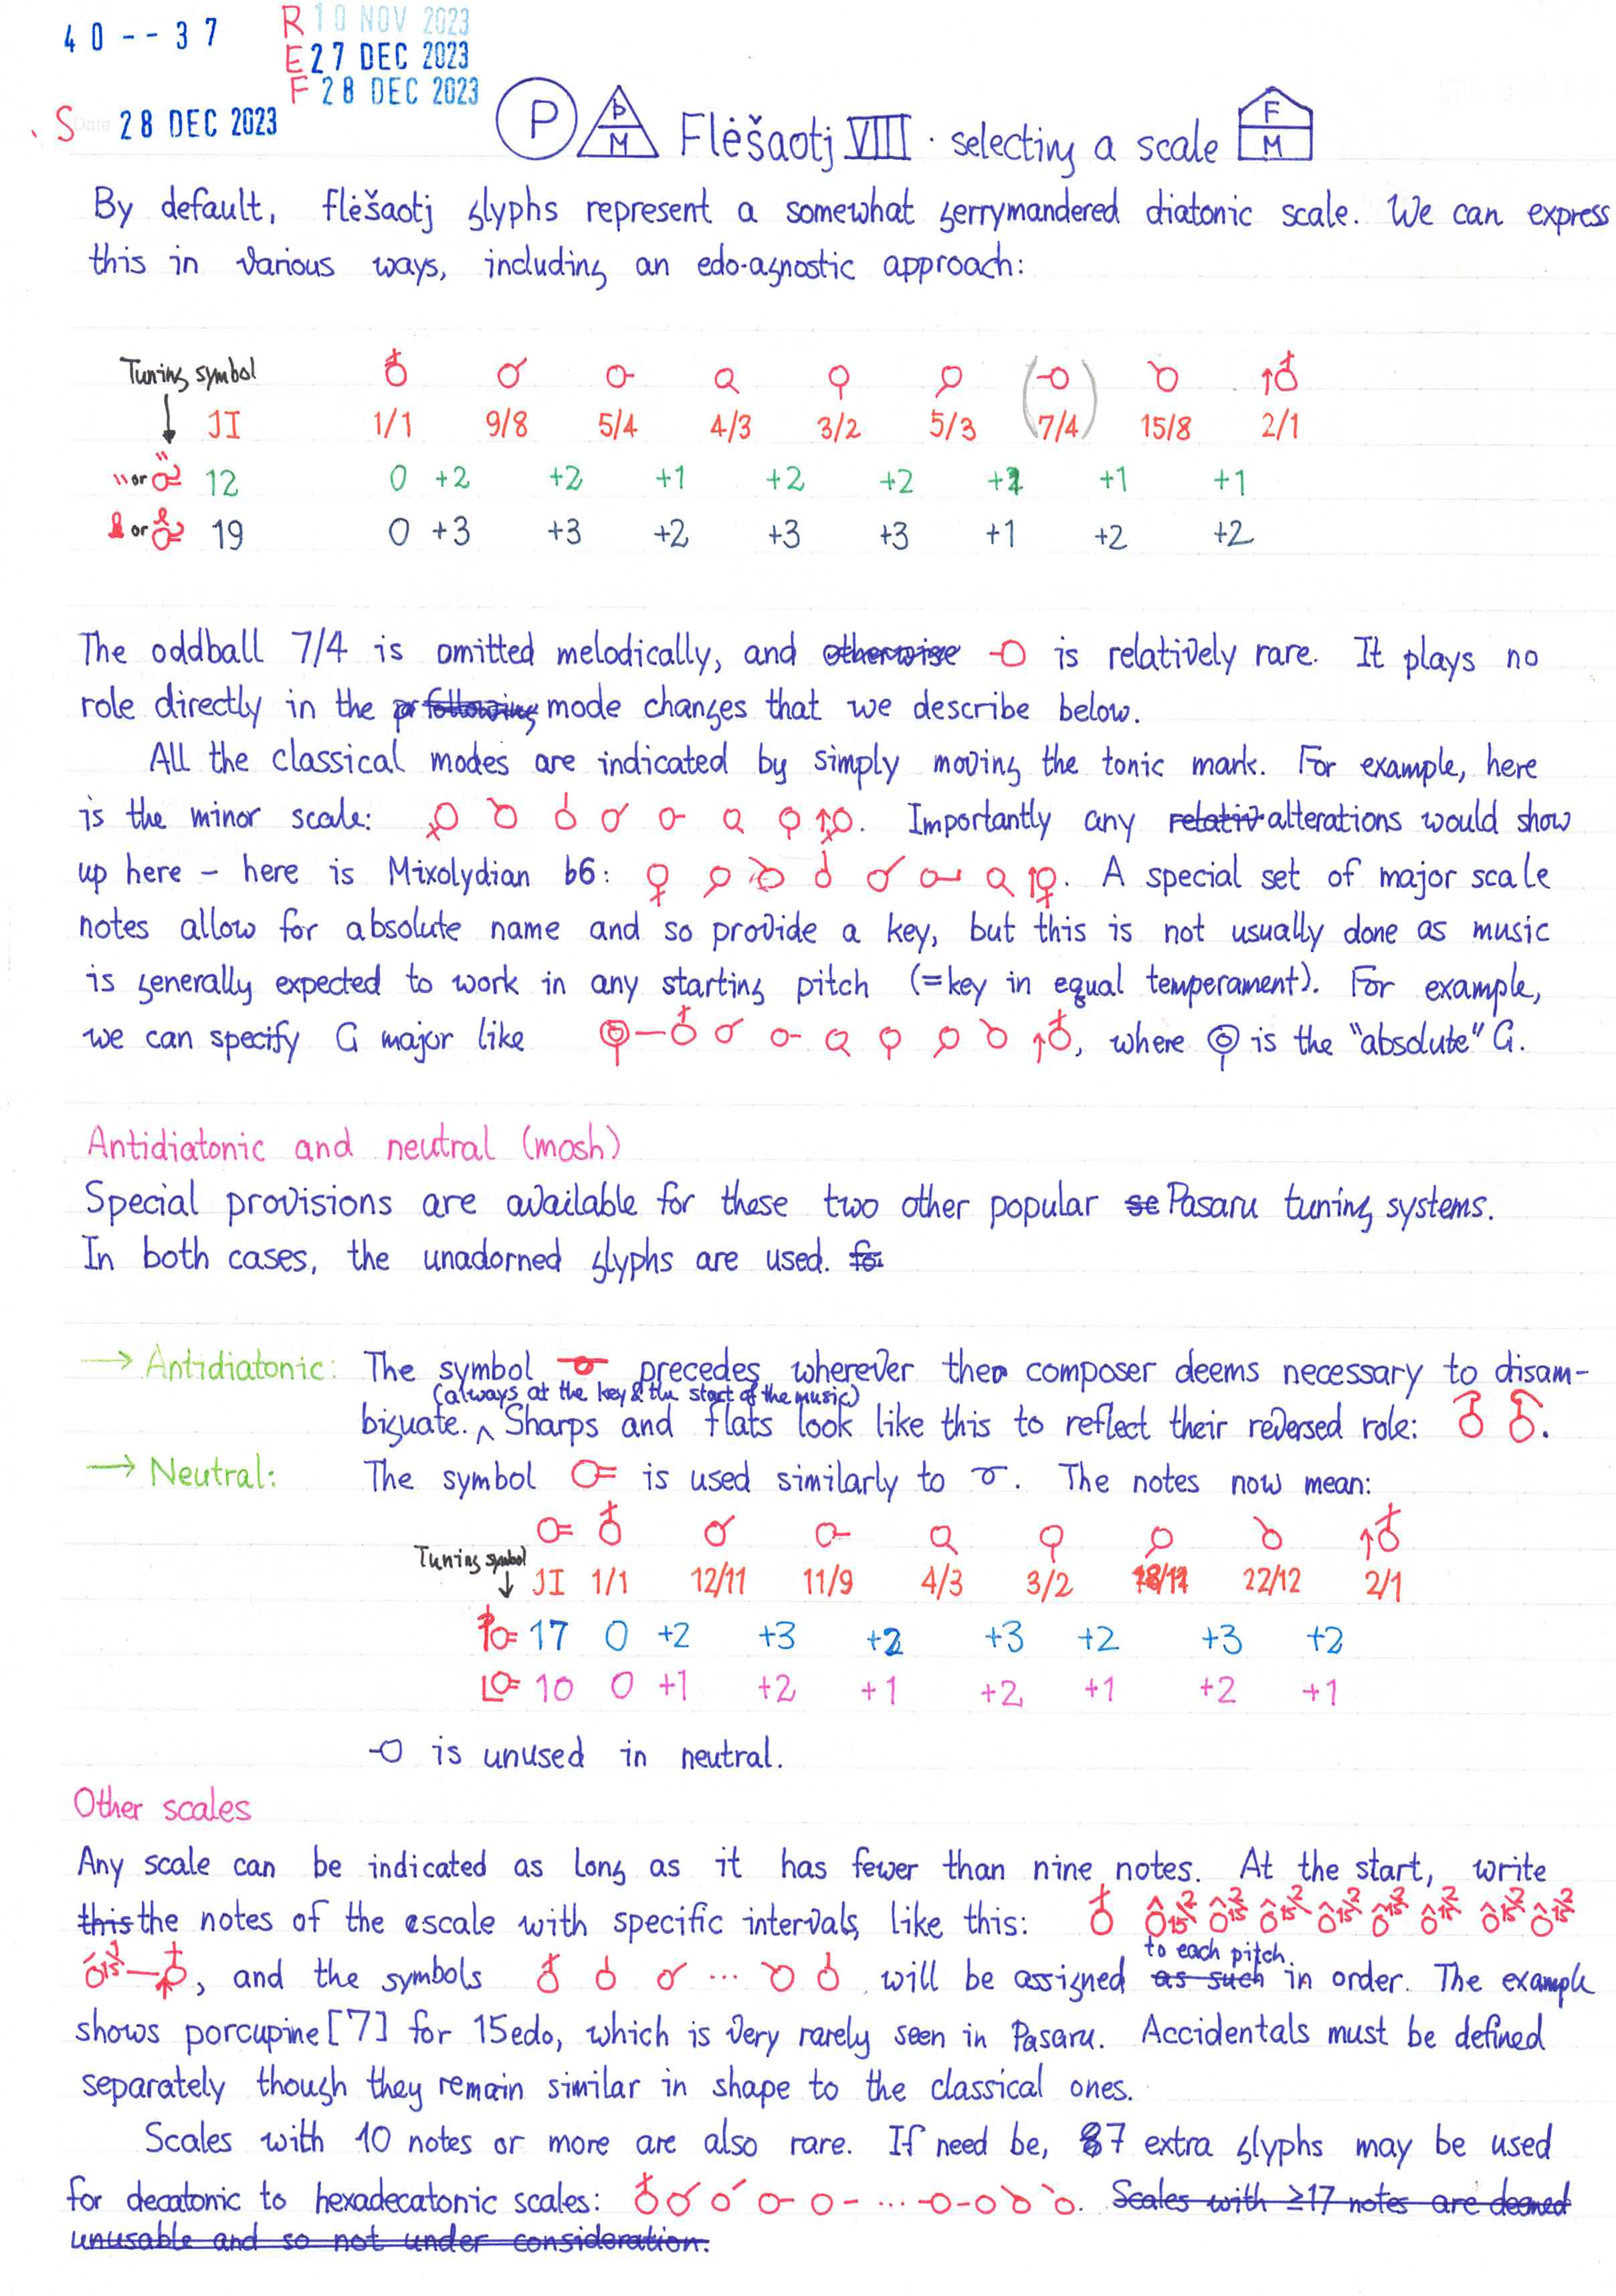 40--37
R 10 NOV 2023
E 27 DEC 2023
F 28 DEC 2023
S Date 28 DEC 2023
P Þ M Flėšaotj VIII · selecting a scale F M
By default, flėšaotj glyphs represent a somewhat gerrymandered diatonic scale. We can express
this in various ways, including an edo-agnostic approach:
Tuning symbol
↓ JI 1/1 9/8 5/4 4/3 3/2 5/3 (7/4) 15/8 2/1
" or 12 0 +2 +2 +1 +2 +2 +1 +1 +1
or 19 0 +3 +3 +2 +3 +3 +1 +2 +2
The oddball 7/4 is omitted melodically, and otherwise is relatively rare. It plays no
role directly in the pr following mode changes that we describe below.
All the classical modes are indicated by simply moving the tonic mark. For example, here
is the minor scale: . Importantly any relativ alterations would show
up here – here is Mixolydian b6: . A special set of major scale
notes allow for absolute name and so provide a key, but this is not usually done as music
is generally expected to work in any starting pitch (=key in equal temperament). For example,
we can specify G major like , where is the "absolute" G.
Antidiatonic and neutral (mosh)
Special provisions are available for these two other popular se Pasaru tuning systems.
In both cases, the unadorned glyphs are used. for
→ Antidiatonic: The symbol precedes wherever the composer deems necessary to disam-
(always at the key & the start of the music)
biguate. ^ Sharps and flats look like this to reflect their reversed role: .
→ Neutral: The symbol is used similarly to . The notes now mean:
Tuning symbol
↓ JI 1/1 12/11 11/9 4/3 3/2 18/11 22/12 2/1
17 0 +2 +3 +2 +3 +2 +3 +2
10 0 +1 +2 +1 +2 +1 +2 +1
is unused in neutral.
Other scales
Any scale can be indicated as long as it has fewer than nine notes. At the start, write
this the notes of the scale with specific intervals, like this:
to each pitch
, and the symbols ... will be assigned as such in order. The example
shows porcupine[7] for 15edo, which is very rarely seen in Pasaru. Accidentals must be defined
separately though they remain similar in shape to the classical ones.
Scales with 10 notes or more are also rare. If need be, 7 extra glyphs may be used
for decatonic to hexadecatonic scales: ... . Scales with ≥17 notes are deemed
unusable and so not under consideration.